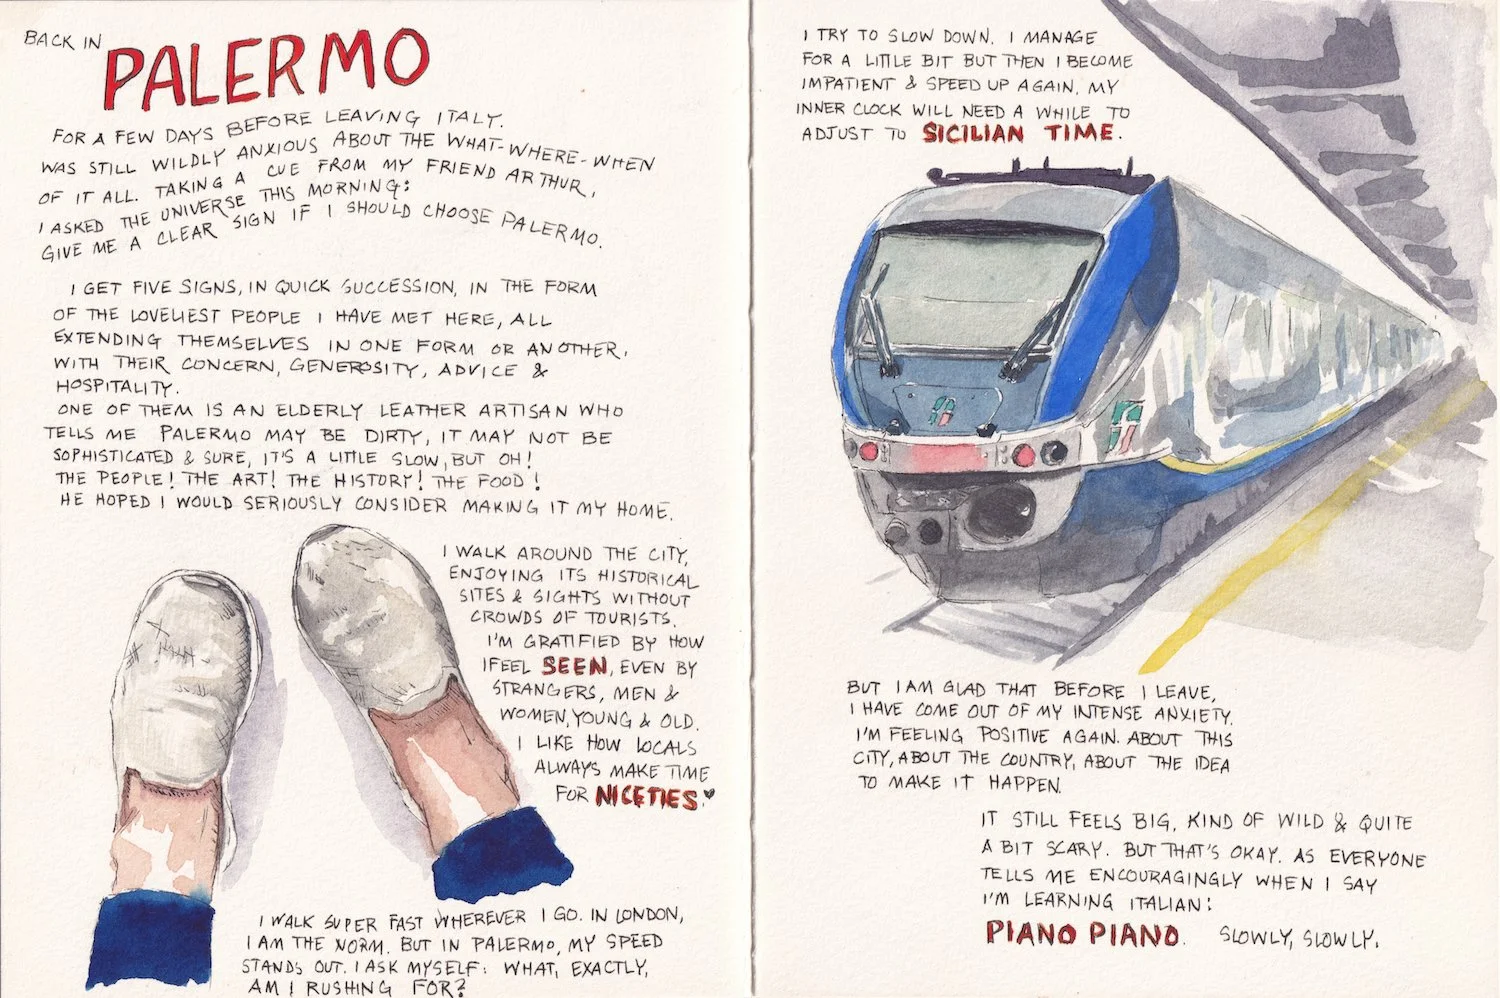 BACK IN
PALERMO
FOR A FEW DAYS BEFORE LEAVING ITALY.
WAS STILL WILDLY ANXIOUS ABOUT THE WHAT-WHERE-WHEN
OF IT ALL. TAKING A CUE FROM MY FRIEND ARTHUR,
I ASKED THE UNIVERSE THIS MORNING:
GIVE ME A CLEAR SIGN IF I SHOULD CHOOSE PALERMO.
I GET FIVE SIGNS, IN QUICK SUCCESSION, IN THE FORM
OF THE LOVELIEST PEOPLE I HAVE MET HERE, ALL
EXTENDING THEMSELVES IN ONE FORM OR ANOTHER,
WITH THEIR CONCERN, GENEROSITY, ADVICE &
HOSPITALITY.
ONE OF THEM IS AN ELDERLY LEATHER ARTISAN WHO
TELLS ME PALERMO MAY BE DIRTY, IT MAY NOT BE
SOPHISTICATED & SURE, IT'S A LITTLE SLOW, BUT OH!
THE PEOPLE! THE ART! THE HISTORY! THE FOOD!
HE HOPED I WOULD SERIOUSLY CONSIDER MAKING IT MY HOME.
I WALK AROUND THE CITY,
ENJOYING ITS HISTORICAL
SITES & SIGHTS WITHOUT
CROWDS OF TOURISTS.
I'M GRATIFIED BY HOW
I FEEL SEEN, EVEN BY
STRANGERS, MEN &
WOMEN, YOUNG & OLD.
I LIKE HOW LOCALS
ALWAYS MAKE TIME
FOR NICETIES.♥
I WALK SUPER FAST WHEREVER I GO. IN LONDON,
I AM THE NORM. BUT IN PALERMO, MY SPEED
STANDS OUT. I ASK MYSELF: WHAT, EXACTLY,
AM I RUSHING FOR?
I TRY TO SLOW DOWN. I MANAGE
FOR A LITTLE BIT BUT THEN I BECOME
IMPATIENT & SPEED UP AGAIN. MY
INNER CLOCK WILL NEED A WHILE TO
ADJUST TO SICILIAN TIME.
BUT I AM GLAD THAT BEFORE I LEAVE,
I HAVE COME OUT OF MY INTENSE ANXIETY.
I'M FEELING POSITIVE AGAIN. ABOUT THIS
CITY, ABOUT THE COUNTRY, ABOUT THE IDEA
TO MAKE IT HAPPEN.
IT STILL FEELS BIG, KIND OF WILD & QUITE
A BIT SCARY. BUT THAT'S OKAY. AS EVERYONE
TELLS ME ENCOURAGINGLY WHEN I SAY
I'M LEARNING ITALIAN:
PIANO PIANO. SLOWLY, SLOWLY.